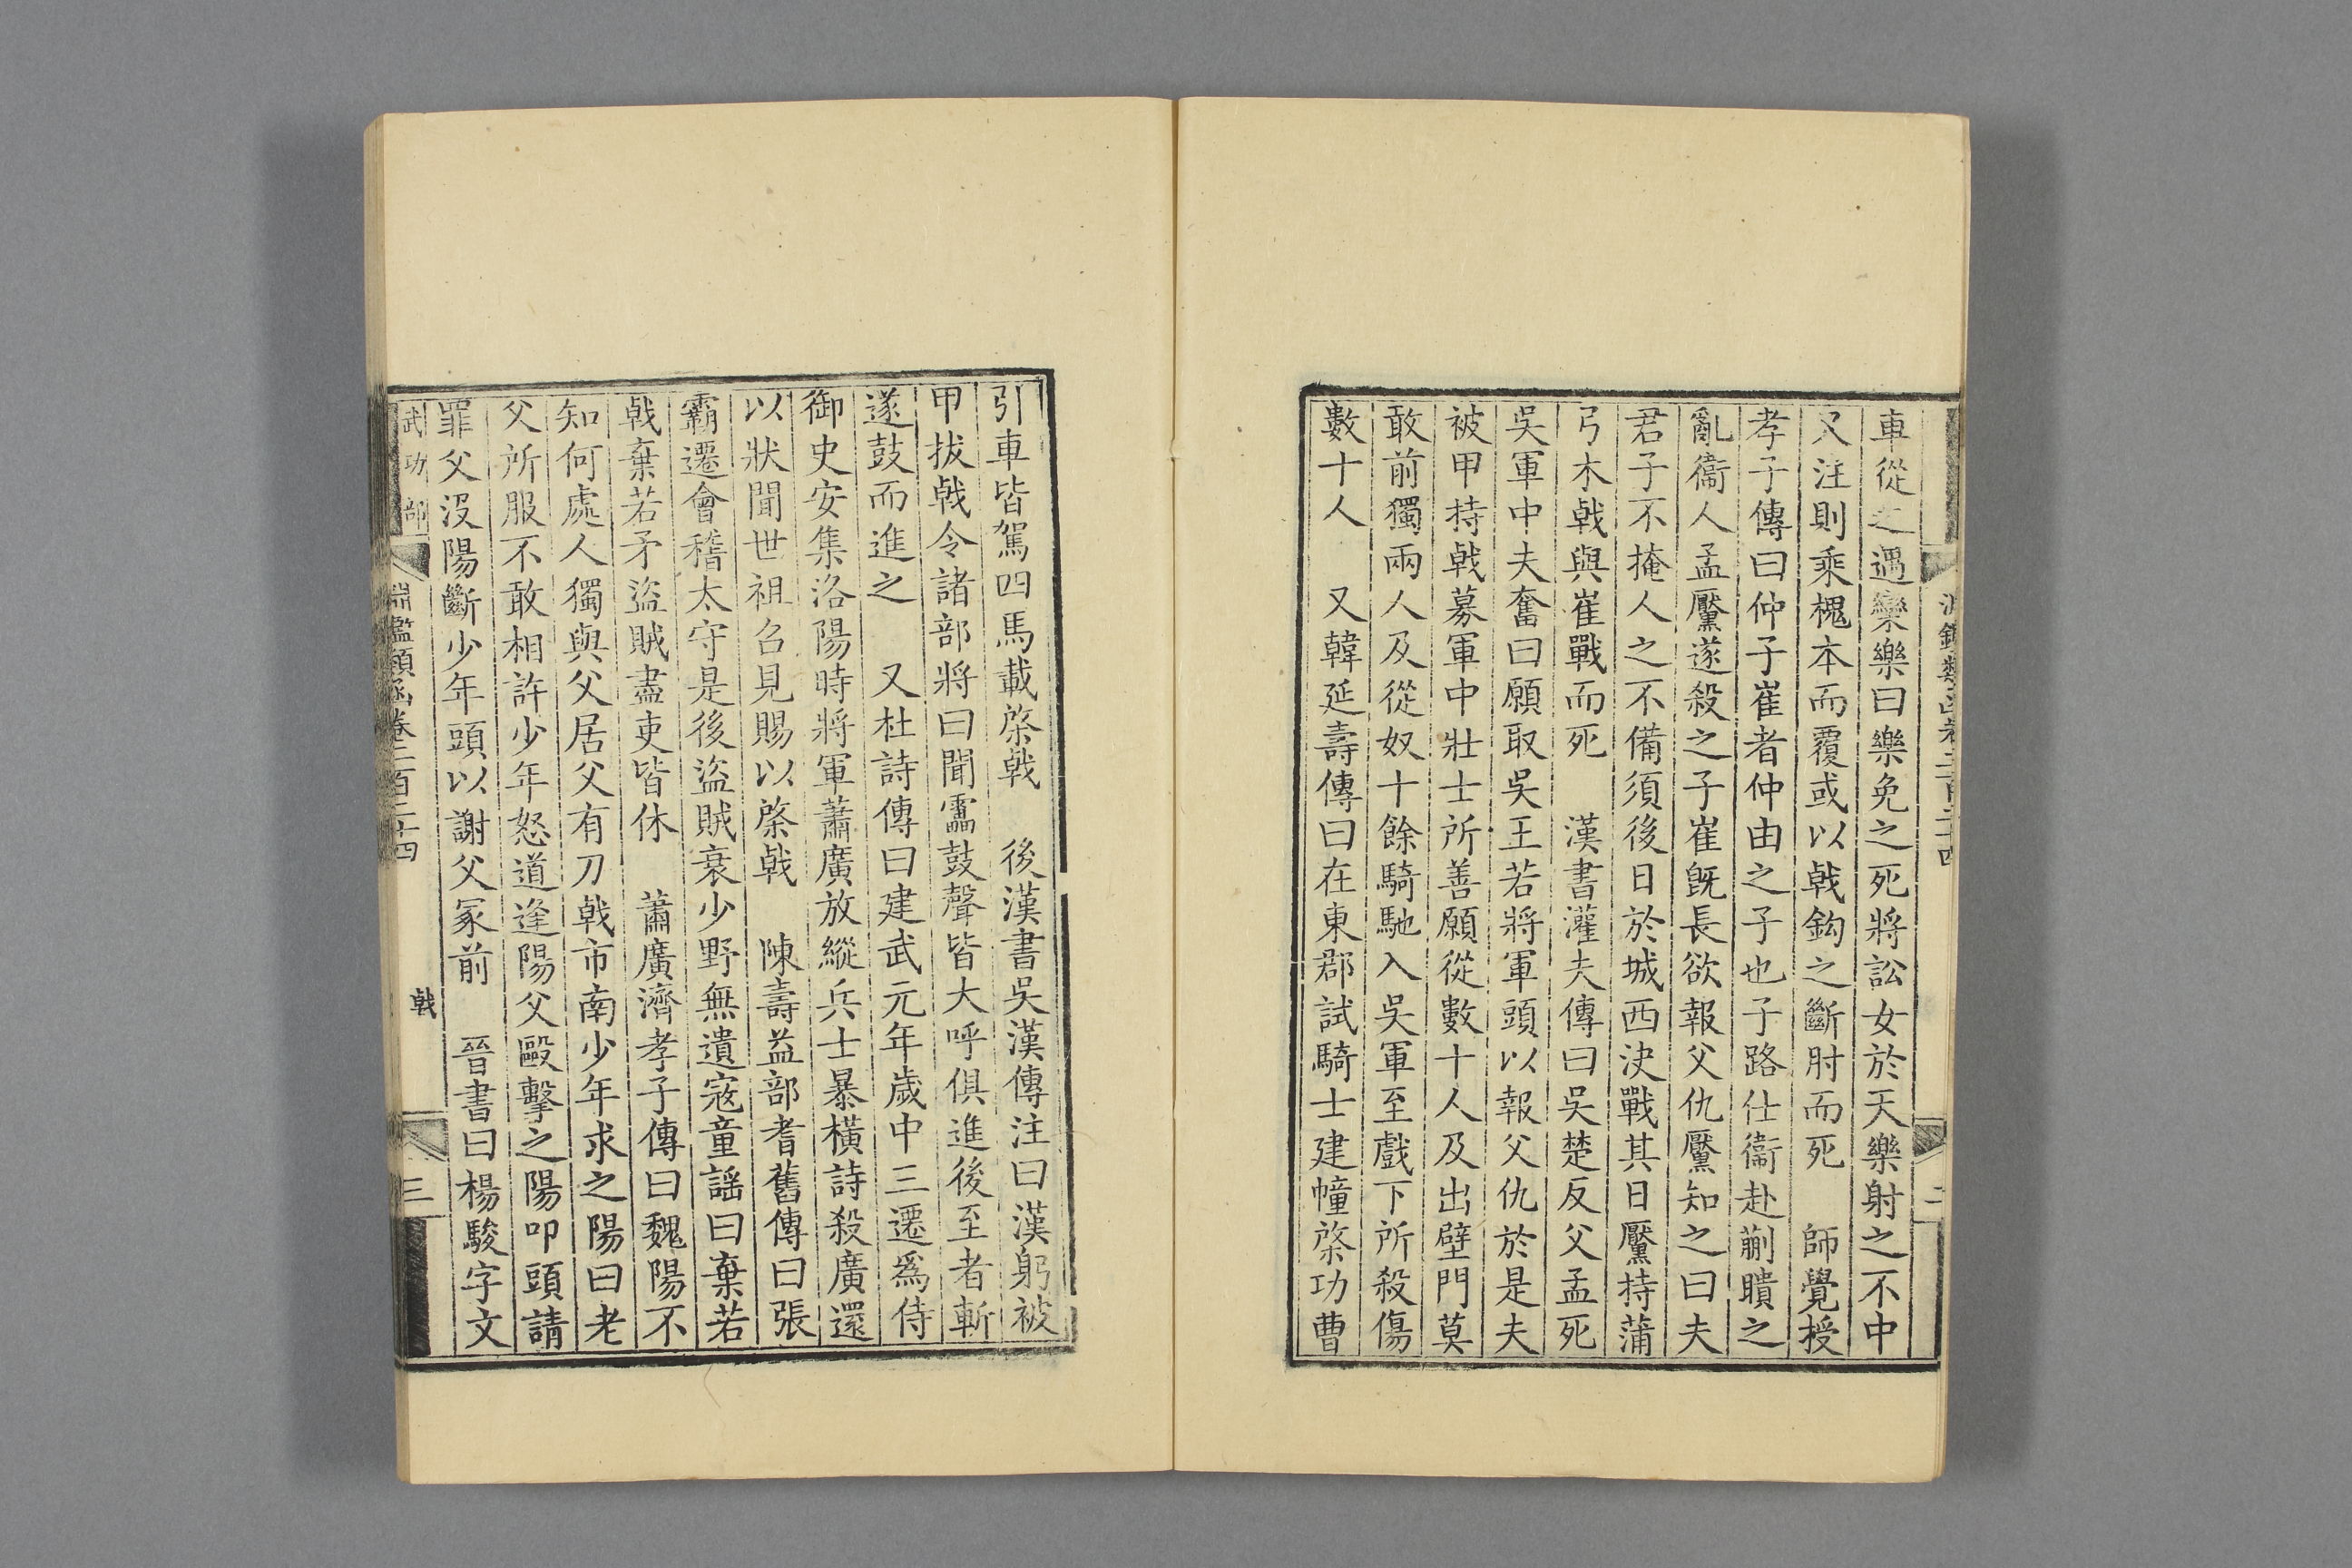 車從之遇欒樂曰樂免之死將訟女於天樂射之不中
又注則乘槐本而覆或以戟鈎之斷肘而死　師覺授
孝子傳曰仲子崔者仲由之子也子路仕衞赴蒯聵之
亂衞人孟黶遂殺之子崔旣長欲報父仇黶知之曰夫
君子不掩人之不備須後日於城西決戰其日黶持蒲
弓木戟與崔戰而死　漢書灌夫傳曰吳楚反父孟死
吳軍中夫奮曰願取吳王若將軍頭以報父仇於是夫
被甲持戟募軍中壯士所善願從數十人及出壁門莫
敢前獨兩人及從奴十餘騎馳入吳軍至戲下所殺傷
數十人　又韓延壽傳曰在東郡試騎士建幢棨功曹
引車皆駕四馬載棨戟　後漢書吳漢傳注曰漢躬被
甲拔戟令諸部將曰聞靁鼓聲皆大呼俱進後至者斬
遂鼓而進之　又杜詩傳曰建武元年歲中三遷爲侍
御史安集洛陽時將軍蕭廣放縱兵士暴橫詩殺廣還
以狀聞世祖召見賜以棨戟　陳壽益部耆舊傳曰張
霸遷會稽太守是後盜賊衰少野無遺寇童謠曰棄若
戟棄若矛盜賊盡吏皆休　蕭廣濟孝子傳曰魏陽不
知何處人獨與父居父有刀戟市南少年求之陽曰老
父所服不敢相許少年怒道逢陽父毆擊之陽叩頭請
罪父沒陽斷少年頭以謝父冢前　晉書曰楊駿字文
武功部　淵鑑類函卷二百二十四　戟　三